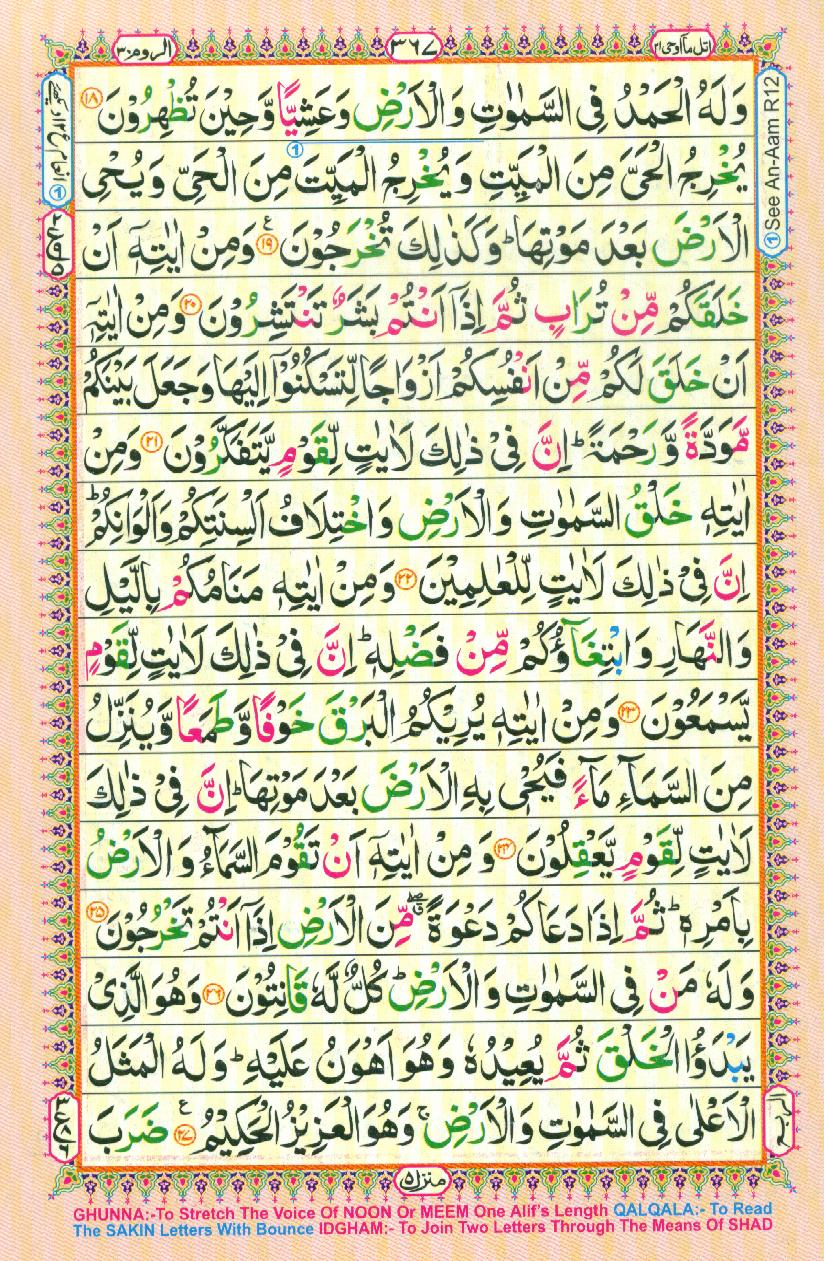 اتل ما اوحی ۲۱
۳۶۷
الروم ۳۰
وَلَهُ الْحَمْدُ فِى السَّمٰوٰتِ وَالْاَرْضِ وَعَشِيًّا وَّحِيْنَ تُظْهِرُوْنَ ۱۸
يُخْرِجُ الْحَىَّ مِنَ الْمَيِّتِ وَيُخْرِجُ الْمَيِّتَ مِنَ الْحَىِّ وَيُحْىِ
الْاَرْضَ بَعْدَ مَوْتِهَا ؕ وَكَذٰلِكَ تُخْرَجُوْنَ ۱۹ ع وَمِنْ اٰيٰتِهٖۤ اَنْ
خَلَقَكُمْ مِّنْ تُرَابٍ ثُمَّ اِذَاۤ اَنْتُمْ بَشَرٌ تَنْتَشِرُوْنَ ۲۰ وَمِنْ اٰيٰتِهٖۤ
اَنْ خَلَقَ لَكُمْ مِّنْ اَنْفُسِكُمْ اَزْوَاجًا لِّتَسْكُنُوْۤا اِلَيْهَا وَجَعَلَ بَيْنَكُمْ
مَّوَدَّةً وَّرَحْمَةً ؕ اِنَّ فِىْ ذٰلِكَ لَاٰيٰتٍ لِّقَوْمٍ يَّتَفَكَّرُوْنَ ۲۱ وَمِنْ
اٰيٰتِهٖ خَلْقُ السَّمٰوٰتِ وَالْاَرْضِ وَاخْتِلَافُ اَلْسِنَتِكُمْ وَاَلْوَانِكُمْ ؕ
اِنَّ فِىْ ذٰلِكَ لَاٰيٰتٍ لِّلْعٰلِمِيْنَ ۲۲ وَمِنْ اٰيٰتِهٖ مَنَامُكُمْ بِالَّيْلِ
وَالنَّهَارِ وَابْتِغَآؤُكُمْ مِّنْ فَضْلِهٖ ؕ اِنَّ فِىْ ذٰلِكَ لَاٰيٰتٍ لِّقَوْمٍ
يَّسْمَعُوْنَ ۲۳ وَمِنْ اٰيٰتِهٖ يُرِيْكُمُ الْبَرْقَ خَوْفًا وَّطَمَعًا وَّيُنَزِّلُ
مِنَ السَّمَآءِ مَآءً فَيُحْىٖ بِهِ الْاَرْضَ بَعْدَ مَوْتِهَا ؕ اِنَّ فِىْ ذٰلِكَ
لَاٰيٰتٍ لِّقَوْمٍ يَّعْقِلُوْنَ ۲۴ وَمِنْ اٰيٰتِهٖۤ اَنْ تَقُوْمَ السَّمَآءُ وَالْاَرْضُ
بِاَمْرِهٖ ؕ ثُمَّ اِذَا دَعَاكُمْ دَعْوَةً ۖ مِّنَ الْاَرْضِ اِذَاۤ اَنْتُمْ تَخْرُجُوْنَ ۲۵
وَلَهٗ مَنْ فِى السَّمٰوٰتِ وَالْاَرْضِ ؕ كُلٌّ لَّهٗ قَانِتُوْنَ ۲۶ وَهُوَ الَّذِىْ
يَبْدَؤُا الْخَلْقَ ثُمَّ يُعِيْدُهٗ وَهُوَ اَهْوَنُ عَلَيْهِ ؕ وَلَهُ الْمَثَلُ
الْاَعْلٰى فِى السَّمٰوٰتِ وَالْاَرْضِ ۚ وَهُوَ الْعَزِيْزُ الْحَكِيْمُ ۲۷ ع ضَرَبَ
① See An-Aam R12
منزل ۵
GHUNNA:-To Stretch The Voice Of NOON Or MEEM One Alif's Length QALQALA:- To Read
The SAKIN Letters With Bounce IDGHAM:- To Join Two Letters Through The Means Of SHAD